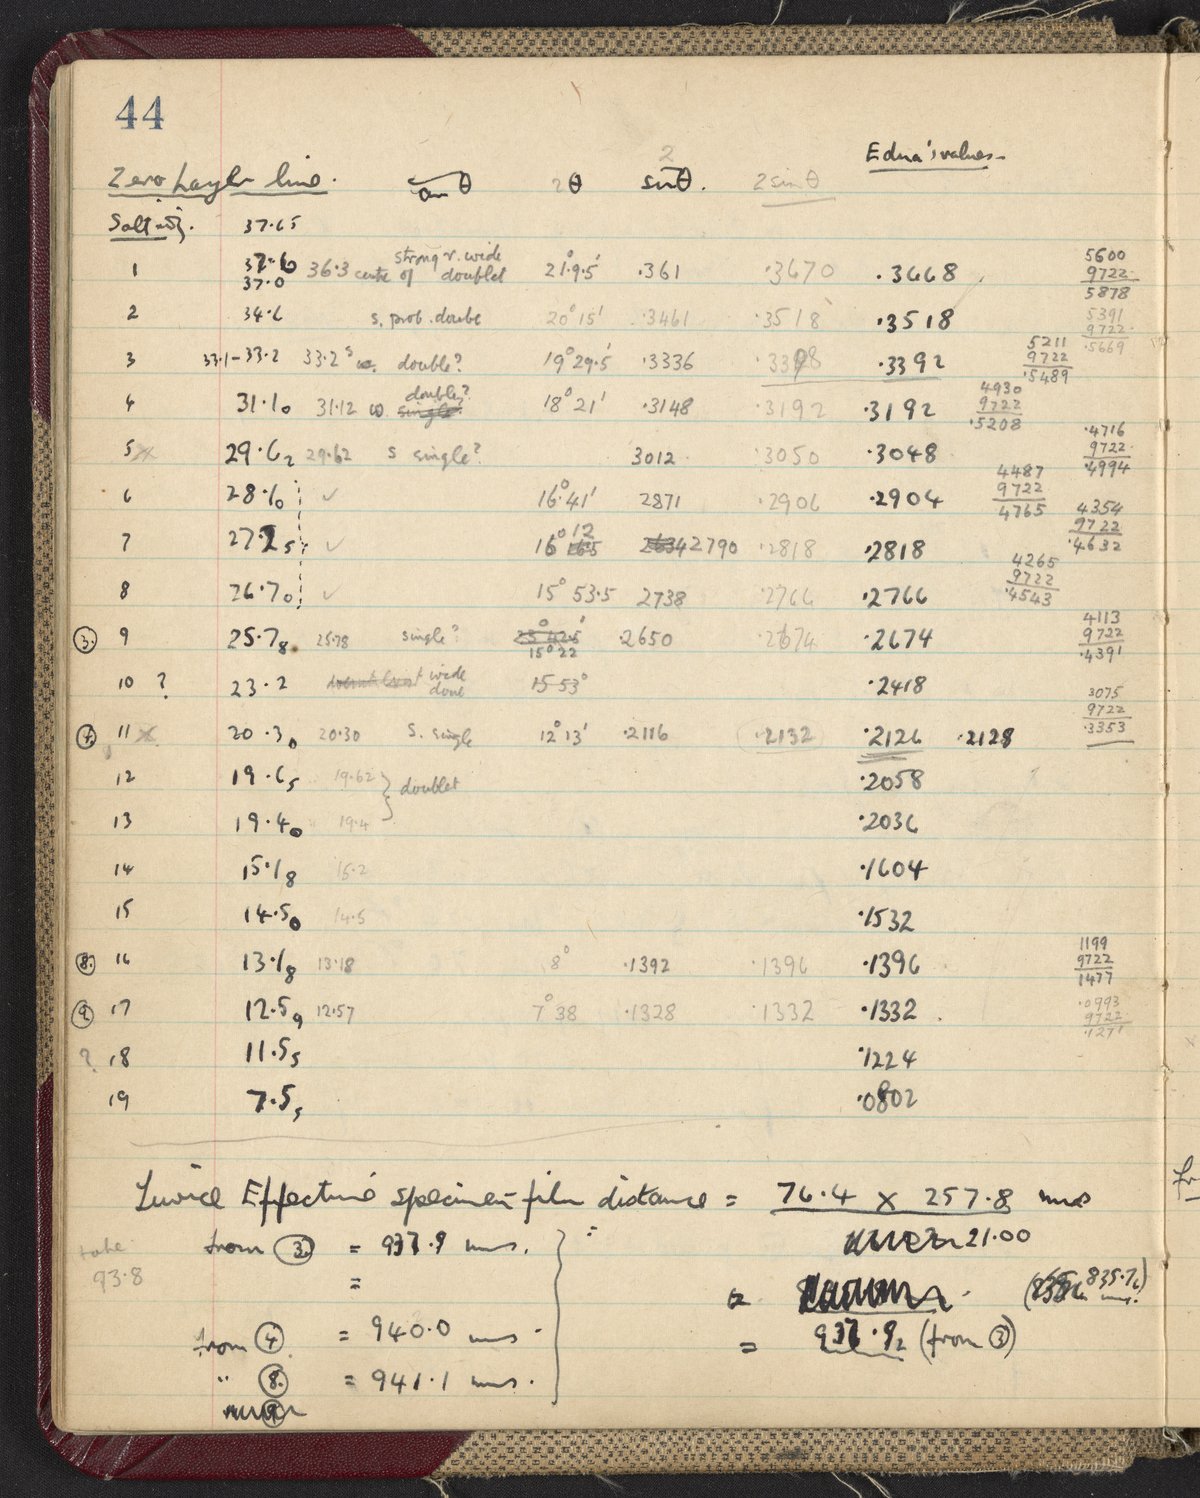 44
Edna's values
Zero Layer line. tan θ 2θ 2 sin θ. 2 sin θ
Salt 37.65
1 37.6 37.0 36.3 centre of strong v. wide doublet 21° 9.5' .361 .3670 .3668 5600 9722 5878
2 34.6 s, prob. double 20° 15' .3461 .3518 .3518 5391 9722 .5669
3 33.1-33.2 33.2 s double? 19° 29.5' .3336 .3398 .3392 5211 9722 .5489
4 31.10 31.12 w. double? single? 18° 21' .3148 .3192 .3192 4930 9722 .5208
5 x 29.62 29.62 s single? 3012 .3050 .3048 .4716 9722 .4994
6 28.10 ✓ 16° 41' 2871 .2906 .2904 4487 9722 4765
7 27.25 ✓ 16° 12 2634 2790 .2818 .2818 4354 9722 .4632
8 26.70 ✓ 15° 53.5 2738 .2766 .2766 4265 9722 .4543
③ 9 25.78 25.78 single? 15° 42.5' 15° 22 .2650 .2674 .2674 4113 9722 .4391
10 ? 23.2 wide 15 53° .2418
④ 11 x 20.30 20.30 s. single 12° 13' .2116 (.2132) .2126 .2128 3075 9722 .3353
12 19.65 19.62 } doublet .2058
13 19.40 19.4 .2036
14 15.18 15.2 .1604
15 14.50 14.5 .1532
⑧ 16 13.18 13.18 8° .1392 .1396 .1396 1199 9722 1477
⑨ 17 12.59 12.57 7° 38 .1328 1332 .1332 .0993 9722 .1271
? 18 11.55 .1224
19 7.55 .0802
Twice Effective specimen-film distance = 76.4 x 257.8 mms
21.00
from ③ = 937.9 mms.
take
93.8
=
= (835.76 mms.)
from ④ = 940.0 mms.
= 937.92 (from ③)
" ⑧ = 941.1 mms.